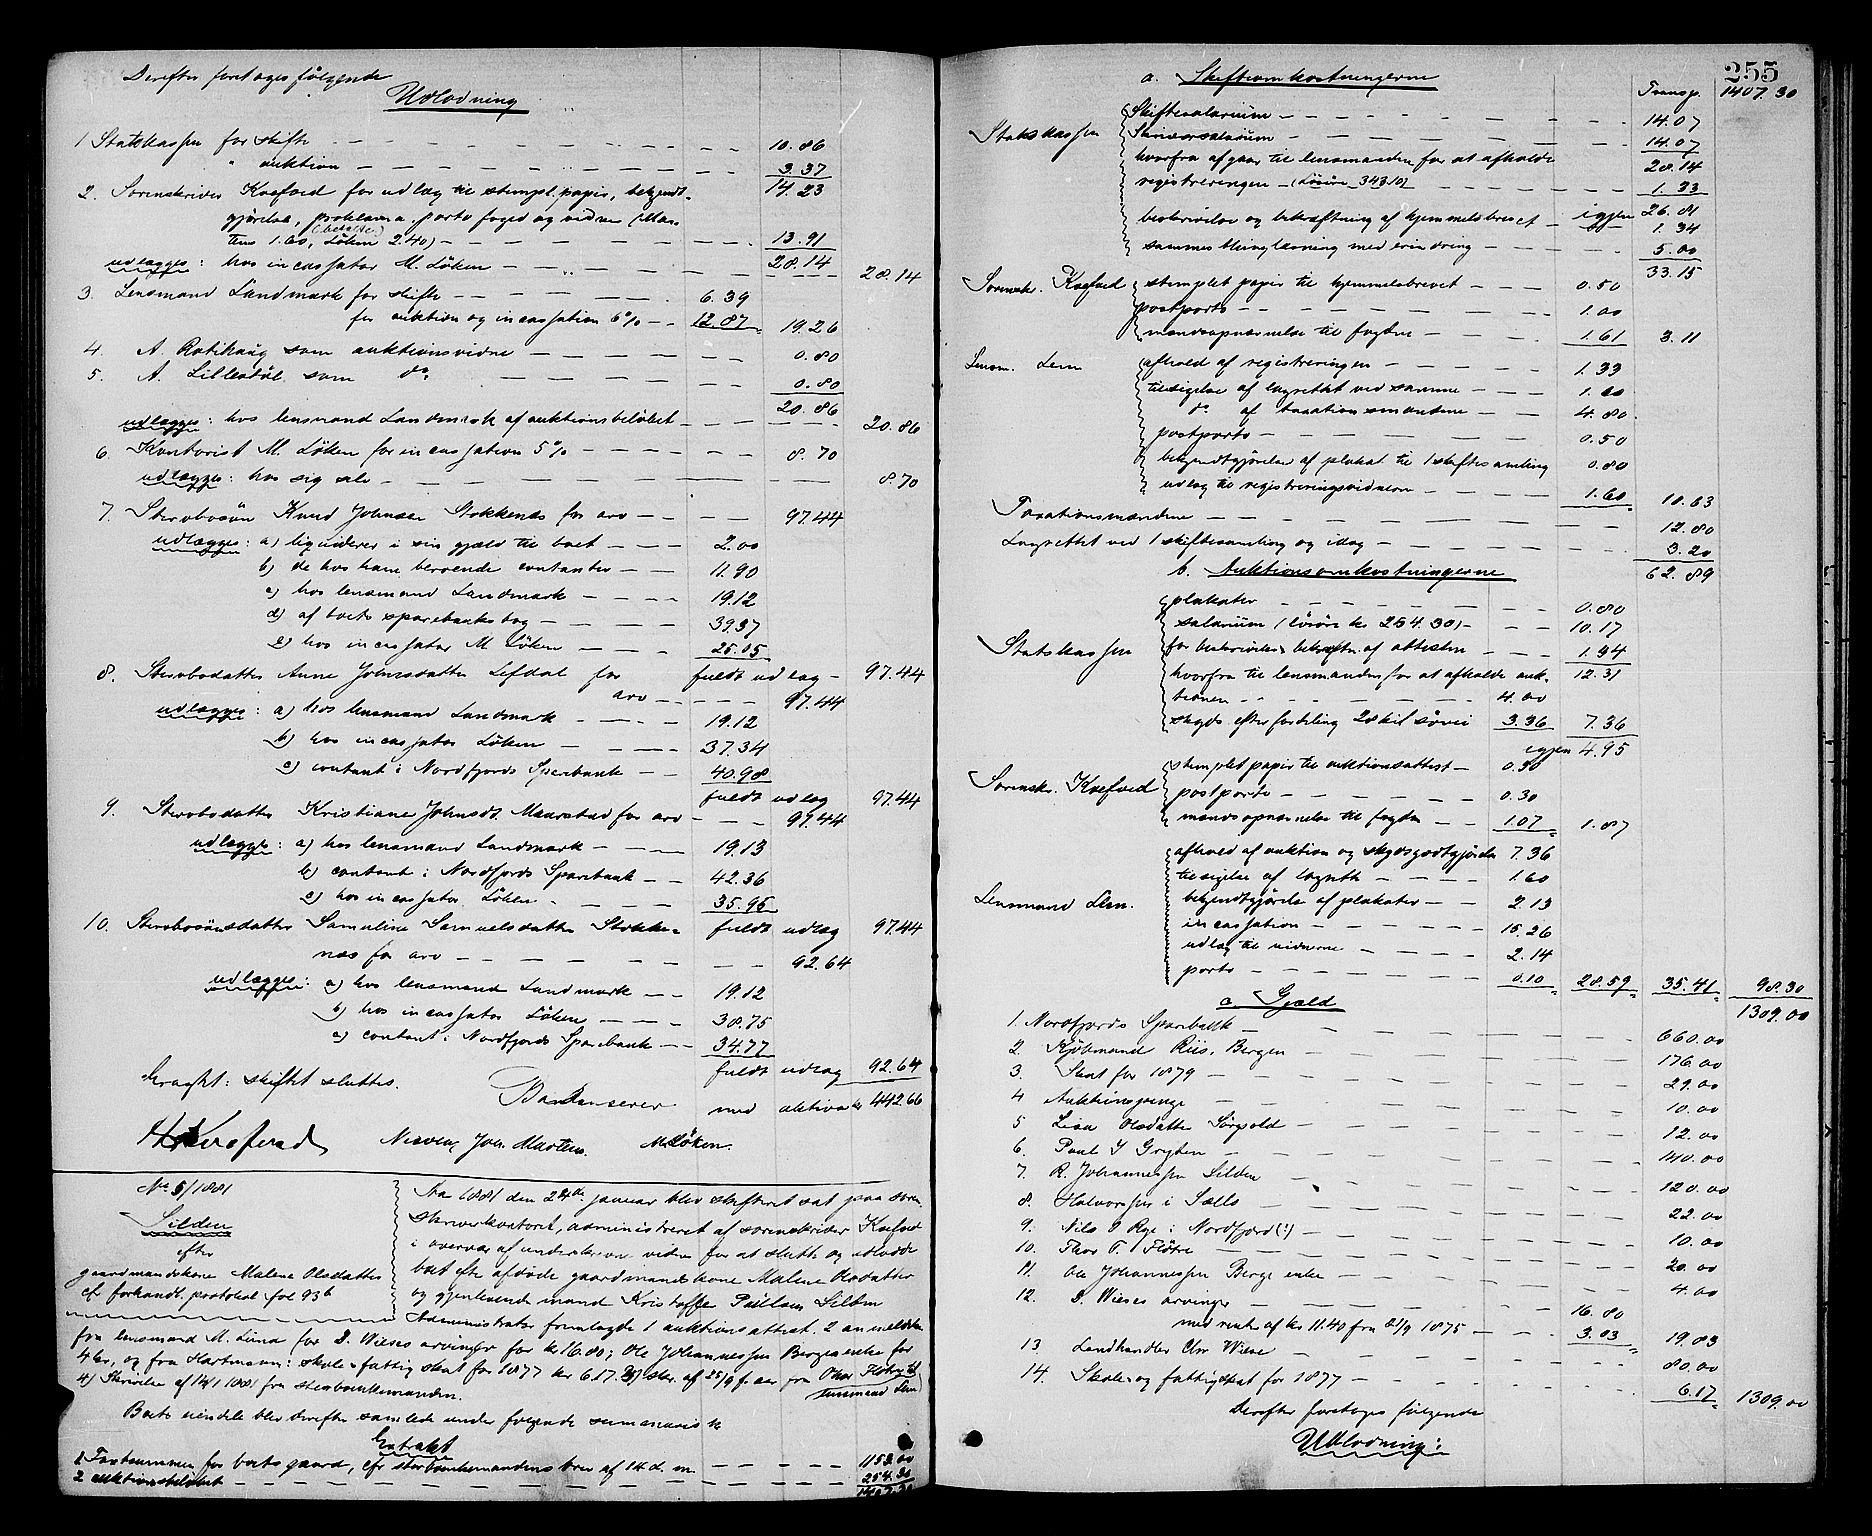 Derefter foretages følgende
Udlodning
1 Statskassen for skifte — 10.86
" auktion — 3.37
14.23
2. Sorenskriver Koefoed for udlæg til stemplt. papir, bekjendt-
gjørelse, proklama, porto foged og vidner (Mar-
tens 1.60, (betalte) Løken 2.40) — 13.91
udlægges: hos incassator M. Løken — 28.14 28.14
3. Lensmand Landmark for skifte — 6.39
for auktion og incassation 6% — 12.87 19.26
4. A. Rotihaug som auktionsvidne — 0.80
5. A. Lillestøl som do — 0.80
20.86
udlægges: hos lensmand Landmark af auktionsbeløbet — 20.86
6. Kontorist M. Løken for incassation 5% — 8.70
udlægges: hos sig selv — 8.70
7. Stervbosøn Knud Johnsen Stokkenes for arv — 97.44
udlægges: a) liquiderer i sin gjæld til boet — 2.00
b) de hos ham beroende contanter — 11.90
c) hos lensmand Landmark — 19.12
d) af boets sparebanksbog — 39.37
e) hos incassator M Løken — 25.05
fuldt udlæg — 97.44
8. Sterbodatter Anne Johnsdatter Lefdal for
arv — 97.44
udlægges: a) hos lensmand Landmark — 19.12
b) hos incassator Løken — 37.34
c) contant i Nordfjords Sparebank — 40.98
fuldt udlæg 97.44
9. Sterbodatter Kristiane Johnsdt. Maurstad for arv — 97.44
udlægges: a) hos lensmand Landmark — 19.13
b) contant i Nordfjords Sparebank — 42.36
c) hos incassator Løken — 35.95
fuldt udlæg 97.44
10. Sterbosønsdatter Samuline Samuelsdatter Stokke-
nes for arv — 92.64
udlægges: a) hos lensmand Landmark — 19.12
b) hos incassator Løken — 38.75
c) contant i Nordfjords Sparebank — 34.77
fuldt udlæg 92.64
Eragtet: skiftet sluttes. Balanserer med aktiva kr 442.66
H Koefoed Nervens Joh. Martens. M Løken.
No 5/1881
Silden
efter
gaardmandskone Malene Olsdatter
cf forhandl. protokol fol 93b
Aar 1881 den 24de januar blev skifteret sat paa soren-
skriverkontoret, administreret af sorenskriver Koefoed
i overvær af undertegnede vidner for at slutte og udlodde
boet efter afdøde gaardmandskone Malene Olsdatter
og gjenlevende mand Kristoffer Paulsen Silden
Administrator fremlagde 1 auktionsattest. 2 anmeldelser
fra lensmand M. Lund for D. Wieses arvinger for kr 16.80; Ole Johannessen Berges enke for
4 kr, og fra Hartmann: skole & fattig skat for 1877 kr 6.17. 3) skr. af 25/9 f. aar fra Thor Flotre til
lensmand Lem
4) Skrivelse af 14/1 1881 fra sterboenkemanden.
Boets eiendele blev derefter samlede under følgende summariske
Extrakt
1 Taxtsummen for boets gaard, cfr sterboenkemandens brev af 14 d. m. — 1153.00
2 auktionsbeløbet — 254.30
1407.30
255
a. Skifteomkostningerne
Transp. 1407.30
Statskassen
Skiftesalarium — 14.07
Skriversalarium — 14.07
28.14
hvorfra afgaar til lensmanden for at afholde
registreringen — (Løsøre 343.10) — 1.33
igjen 26.81
beskrivelse og bekræftning af hjemmelsbrevet — 1.34
sammes thinglæsning med erindring — 5.00
33.15
Sorenskr. Koefoed
stemplet papir til hjemmelsbrevet — 0.50
postporto — 1.00
mandsopnævnelse til fogden — 1.61 3.11
Lensm. Lem
afhold af registreringen — 1.33
tilsigelse af lagrettet ved samme — 1.60
do af taxationsmændene — 4.80
postporto — 0.50
bekjendtgjørelse af plakat til 1 skiftesamling 0.80
udlæg til registreringsvidnerne — 1.60 10.63
Taxationsmændene — 12.80
Lagrettet ved 1 skiftesamling og idag — 3.20
62.89
b. Auktionsomkostningerne
Statskassen
plakater — 0.80
salarium (løsøre kr 254.30) — 10.17
for beskrivelse & bekræftn. af attesten — 1.34
12.31
hvorfra til lensmanden for at afholde auk-
tionen — 4.00
skyds efter fordeling 2 skil. søvei 3.36 7.36
igjen 4.95
Sorenskr. Koefoed
stemplet papir til auktionsattest — 0.50
postporto — 0.30
mandsopnævnelse til fogden — 1.07 1.87
Lensmand Lem.
afhold af auktion og skydsgodtgjørelse 7.36
tilsigelse af lagrette — 1.60
bekjendtgjørelse af plakater — 2.13
incassation — 15.26
udlæg til vidnerne — 2.14
porto — 0.10 28.59 35.41 98.30
1309.00
c. Gjæld
1. Nordfjords Sparebank — 660.00
2. Kjøbmand Riis, Bergen — 176.00
3. Skat for 1879 — 29.00
4 Auktionspenge — 10.00
5 Lisa Olsdatter Sørpold — 12.00
6. Paul I Gryten — 140.00
7. R. Johannessen Silden — 120.00
8. Halvorsen i Sælls — 22.00
9. Nils O Rye i Nordfjord (:) — 10.00
10. Thor T. Fløtre — 20.00
11. Ole Johannessen Berges enke — 4.00
12. D. Wieses arvinger — 16.80
med rente af kr 11.40 fra 21/9 1875 — 3.03 19.83
13. Landhandler Chr Wiese — 80.00
14. Skole- og fattigskat for 1877 — 6.17 1309.00
Derefter foretages følgende
Udlodning: